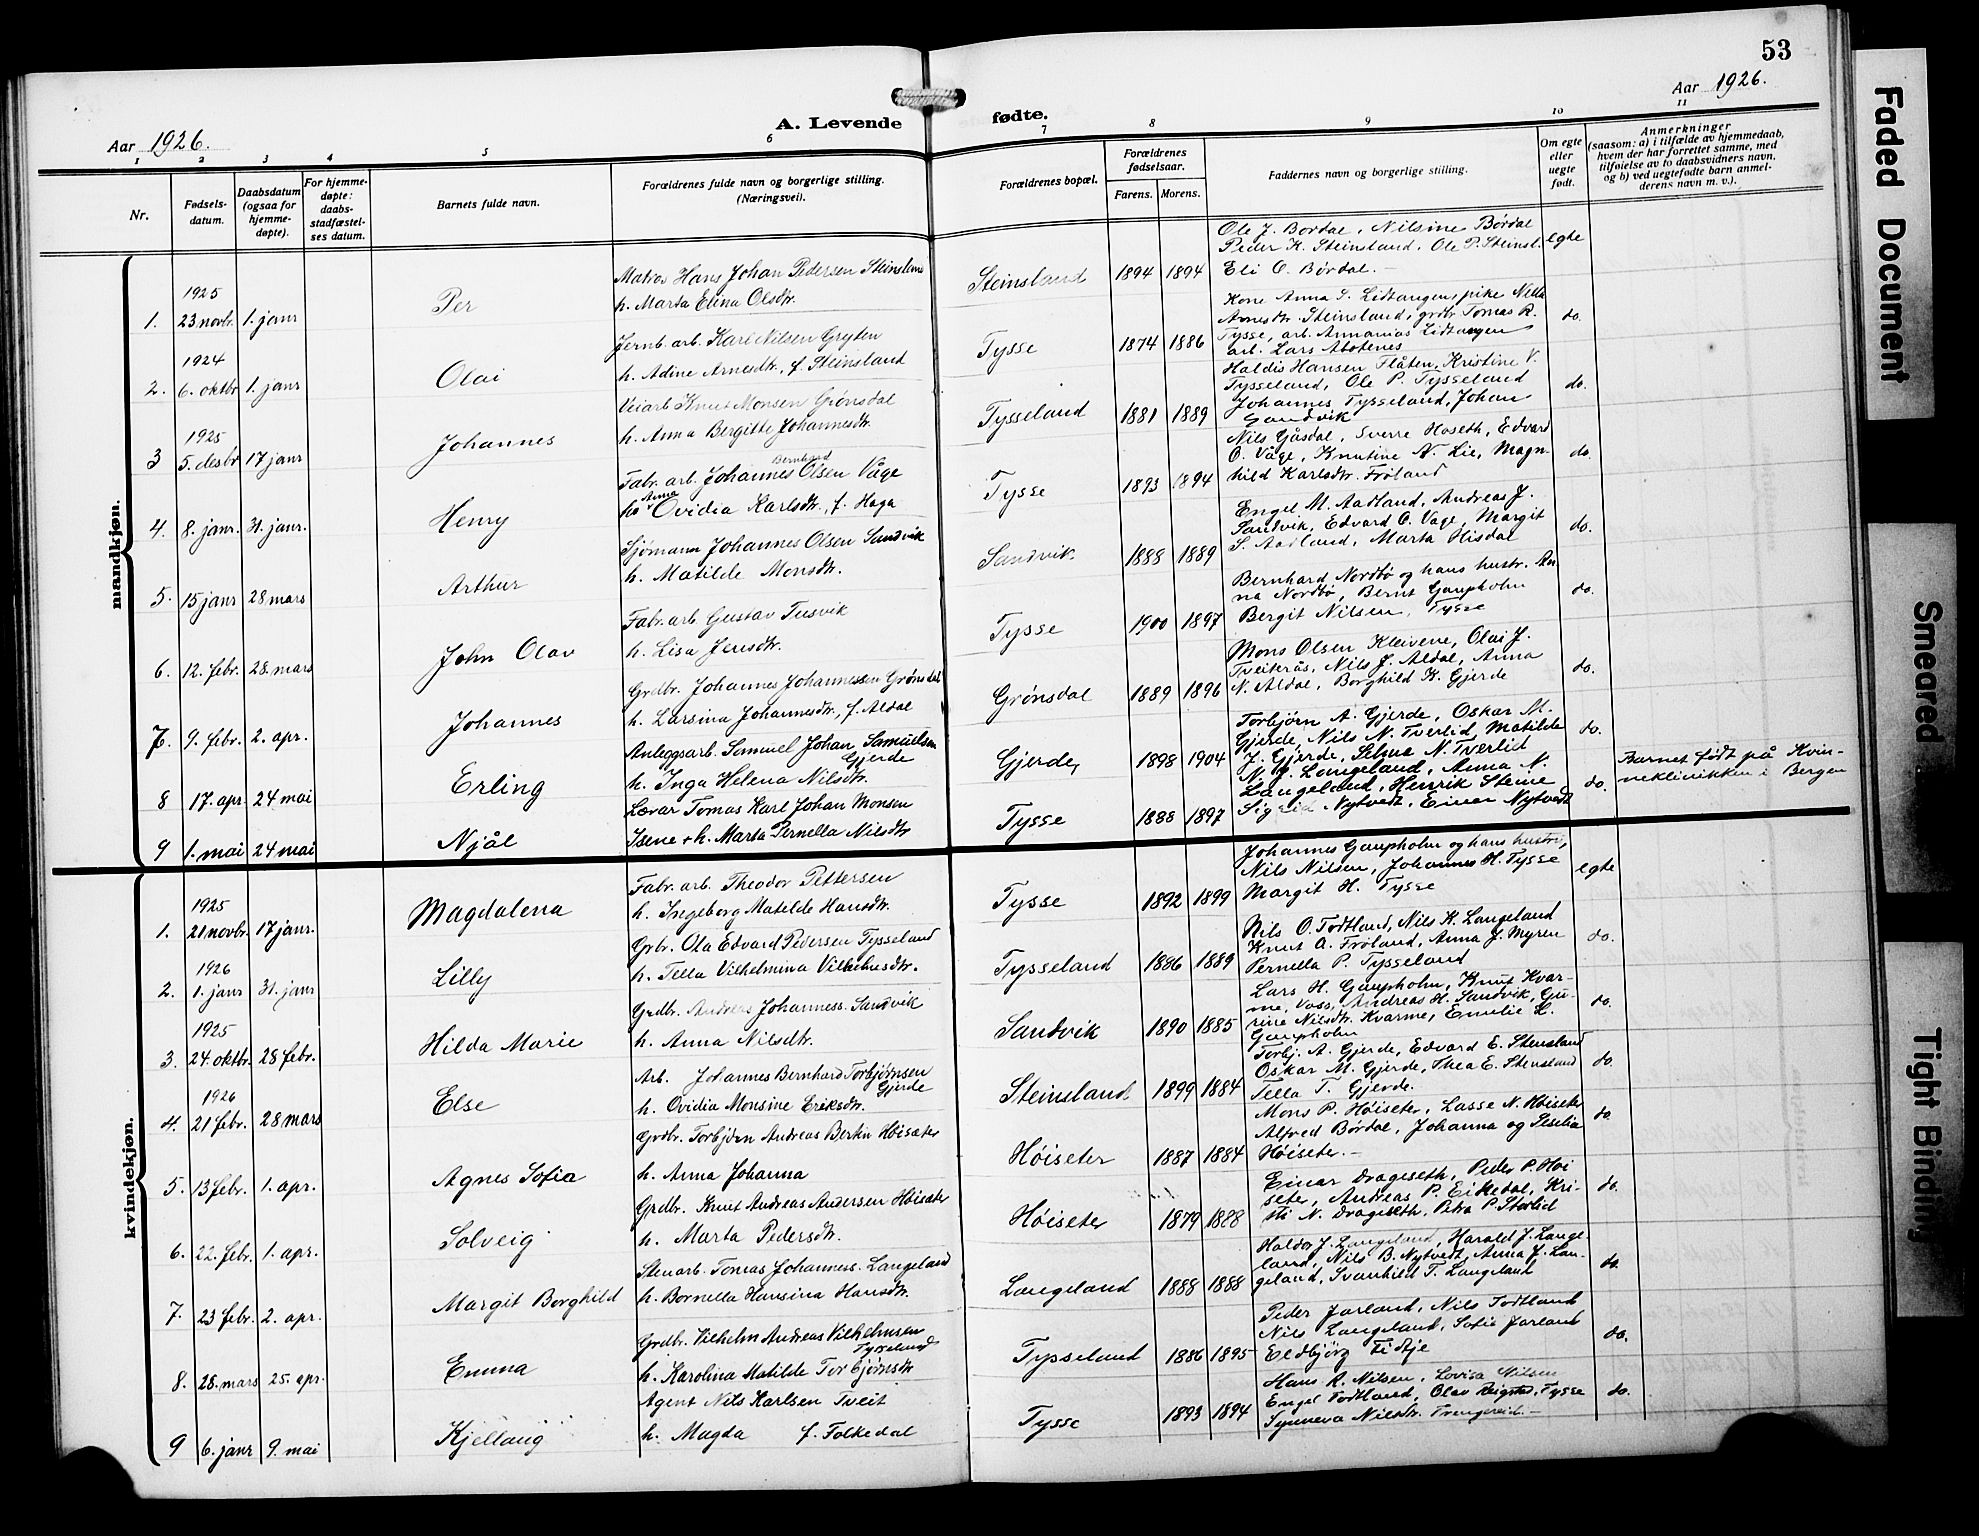 53
Aar 1926.
A. Levende fødte.
Aar 1926.
1 2 3 4 5 6 7 8 9 10 11
Nr.
Fødsels-
datum.
Daabsdatum
(ogsaa for
hjemme-
døpte).
For hjemme-
døpte:
daabs-
stadfæstel-
ses datum.
Barnets fulde navn.
Forældrenes fulde navn og borgerlige stilling.
(Næringsvei).
Forældrenes bopæl.
Forældrenes
fødselsaar.
Farens. Morens.
Faddernes navn og borgerlige stilling.
Om egte
eller
uegte
født.
Anmerkninger
(saasom: a) i tilfælde av hjemmedaab,
hvem der har forrettet samme, med
tilføielse av to daabsvidners navn,
og b) ved uegtefødte barn anmel-
derens navn m. v.).
mandkjøn.
1. 1925 23 novbr. 1. janr Per
Hans Johan Pedersen Steinsland
h. Marta Elina Olsdtr.
Steinsland 1894 1894
Ole J. Bordal, Nilsine Børdal
Peder K. Steinsland, Ole P. Steinsl.
Eli O. Børdal. —
egte
2. 1924 6. oktbr 1. janr Olai
Jernb. arb. Karl Nilsen Gryten
h. Adine Arnesdtr., f. Steinsland
Tysse 1874 1886
Kone Anna S. Lidtangen, pike Nella
Arnesdtr. Steinsland, grdbr Tomas R.
Tysse, arb. Annanias Lidtangen
arb. Lars
do.
3 1925 5. desbr 17 janr Johannes
Veiarb Knut Monsen Grønsdal
h. Anna Bergitte Johannesdtr.
Tysseland 1881 1889
Haldis Hansen Flåten, Kristine V.
Tysseland, Ole P. Tysseland
Johannes Tysseland, Johan
Sandvik
do.
4. 8. janr. 31. janr. Henry
Fabr. arb. Johannes Bernhard Olsen Våge
h. Anna Ovidia Karlsdtr., f. Haga
Tysse 1893 1894
Nils Gåsdal, Sverre Hoseth, Edvard
O. Våge, Knutine N. Lie, Magn-
hild Karlsdtr. Frøland
do.
5. 15 janr 28 mars Arthur
Sjømann Johannes Olsen Sandvik
h. Matilde Monsdtr.
Sandvik. 1888 1889
Engel M. Aadland, Andreas J.
Sandvik, Edvard O. Vage, Margit
S. Aadland, Marta Hisdal
do.
6. 12. febr. 28. mars John Olav
Fabr. arb. Gustav Tusvik
h. Lisa Jensdtr.
Tysse 1900 1897
Bernhard Nordbø og hans hustr. An
na Nordbø, Bernt Gaupholm
Bergit Nilsen, Tysse
do.
7. 9. febr. 2. apr. Johannes
Grdbr. Johannes Johannessen Grønsdal
h. Larsina Johannesdtr., f. Aldal
Grønsdal 1889 1896
Mons Olsen Kleivene, Olai J.
Tveiterås, Nils J. Aldal, Anna
N. Aldal, Borghild K. Gjerde
do.
8 17. apr 24 mai Erling
Anleggsarb. Samuel Johan Samuelsen
Gjerde
h. Inga Helena Nilsdtr.
Gjerde, 1898 1904
Torbjørn A. Gjerde, Oskar M.
Gjerde, Nils N. Tverlid Matilde
J. Gjerde, Selma N. Tverlid
do.
9 1. mai 24 mai Njål
Lærar Tomas Karl Johan Monsen
Isene + h. Marta Pernella Nilsdtr
Tysse 1888 1897
N. J. Langeland, Anna N.
Langeland, Henrik Steine
Sigrid Nytvedt, Einar Nytvedt
do.
Barnet født på Kvin-
neklinikken i Bergen
kvindekjøn.
1. 1925 21 novbr. 17 janr. Magdalena
Fabr. arb. Theodor Pettersen
h. Ingeborg Matilde Hansdtr.
Tysse 1892 1899
Johannes Gaupholm og hans hustru,
Nils Nilsen, Johannes H. Tysse
Margit H. Tysse
egte
2. 1926 1. janr 31. janr Lilly
Grbr. Ola Edvard Pedersen Tysseland
h. Tella Vilhelmina Vilhelmsdtr.
Tysseland 1886 1889
Nils O. Todtland, Nils K. Langeland
Knut A. Frøland, Anna J. Myren
Pernella P. Tysseland
do.
3. 1925 24. oktbr. 28 febr. Hilda Marie
Grdbr. Andreas Johanness. Sandvik
h. Anna Nilsdtr.
Sandvik 1890 1885
Lars H. Gaupholm, Knut Kvar-
me, Voss, Andreas H. Sandvik, Gu-
rine Nilsdtr. Kvarme, Emilie L.
Gaupholm
do.
4. 1926 21 febr. 28 mars Else
Arb. Johannes Bernhard Torbjørnsen
Gjerde
h. Ovidia Monsine Eriksdtr.
Steinsland 1899 1884
Torbj. A. Gjerde, Edvard E. Stensland
Oskar M. Gjerde, Thea E. Stensland
Tella T. Gjerde.
do.
5. 13 febr. 1. apr. Agnes Sofia
Grdbr. Torbjørn Andreas Bertin Høisæter
h. Anna Johanna
Høiseter 1887 1884
Mons P. Høiseter, Lasse N. Høiseter
Alfred Børdal, Johanna og Seselia
Høiseter. —
do
6. 22. febr. 1. apr. Solveig
Grdbr. Knut Andreas Andersen Høisæter
h. Marta Pedersdtr.
Høiseter 1879 1888
Einar Drageseth, Peder P. Høi
seter, Andreas P. Eikedal, Kri-
sti N. Drageseth, Petra P. Storlid
do.
7. 23 febr. 2. apr. Margit Borghild
Stenarb. Tomas Johanness. Langeland
h. Bornella Hansina Hansdtr.
Langeland 1888 1888
Haldor J. Langeland, Harald J. Lange-
land, Nils B. Nytvedt, Anna J. Lan-
geland, Svanhild T. Langeland
do.
8. 28. mars 25. apr. Emma
Grdbr. Vilhelm Andreas Vilhelmsen
Tysseland
h. Karolina Matilde Torbjørnsdtr
Tysseland 1886 1895
Peder Jarland, Nils Todtland
Nils Langeland, Sofie Jarland
Eldbjørg Tidtje
do.
9 6. janr 9. mai Kjellaug
Agent Nils Karlsen Tveit
h. Magda f. Folkedal
Tysse 1893 1894
Hans R. Nilsen, Lovisa Nilsen
Engel Todtland, Olav Reigstad, Tysse
Synneva Nilsdtr. Trengereid. —
do.
Faded Document
Smeared
Tight Binding